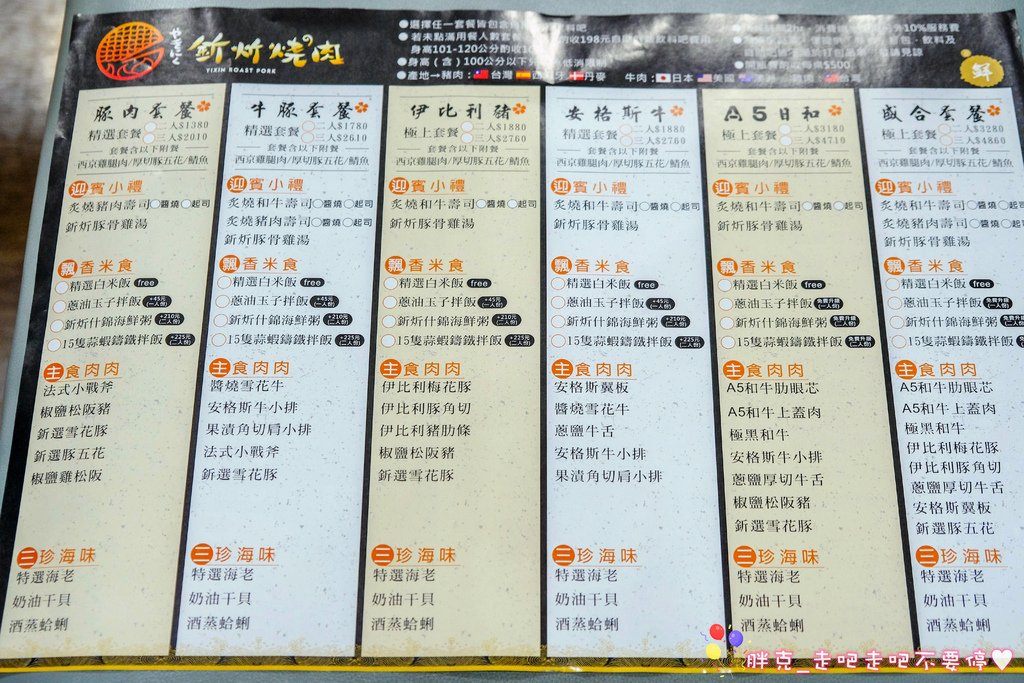 やきにく
釿炘燒の肉
YIXIN ROAST PORK
●選擇任一套餐皆包含
●若未點滿用餐人數套餐
身高101-120公分酌收
●身高(含)100公分以下
●產地→豬肉：台灣 西班牙 丹麥 牛肉：日本 美國 台灣
鮮
豚肉套餐
精選套餐 二人$1380
三人$2010
套餐含以下附餐
西京雞腿肉/厚切豚五花/鯖魚
迎賓小禮
炙燒豬肉壽司 醬燒 起司
釿炘豚骨雞湯
飄香米食
精選白米飯 free
蔥油玉子拌飯 +45元 (一人份)
釿炘什錦海鮮粥 +210元 (二人份)
15隻蒜蝦鑄鐵拌飯 +225元 (二人份)
主食肉肉
法式小戰斧
椒鹽松阪豬
釿選雪花豚
釿選豚五花
椒鹽雞松阪
三珍海味
特選海老
奶油干貝
酒蒸蛤蜊
牛豚套餐
精選套餐 二人$1780
三人$2610
套餐含以下附餐
西京雞腿肉/厚切豚五花/鯖魚
迎賓小禮
炙燒和牛壽司 醬燒 起司
炙燒豬肉壽司 醬燒 起司
釿炘豚骨雞湯
飄香米食
精選白米飯 free
蔥油玉子拌飯 +45元 (一人份)
釿炘什錦海鮮粥 +210元 (二人份)
15隻蒜蝦鑄鐵拌飯 +225元 (二人份)
主食肉肉
醬燒雪花牛
安格斯牛小排
果漬角切肩小排
法式小戰斧
釿選雪花豚
三珍海味
特選海老
奶油干貝
酒蒸蛤蜊
伊比利豬
極上套餐 二人$1880
三人$2760
套餐含以下附餐
西京雞腿肉/厚切豚五花/鯖魚
迎賓小禮
炙燒和牛壽司 醬燒 起司
釿炘豚骨雞湯
飄香米食
精選白米飯 free
蔥油玉子拌飯 +45元 (一人份)
釿炘什錦海鮮粥 +210元 (二人份)
15隻蒜蝦鑄鐵拌飯 +225元 (二人份)
主食肉肉
伊比利梅花豚
伊比利豚角切
伊比利豬肋條
椒鹽松阪豬
釿選雪花豚
三珍海味
特選海老
奶油干貝
酒蒸蛤蜊
安格斯牛
精選套餐 二人$1880
三人$2760
套餐含以下附餐
西京雞腿肉/厚切豚五花/鯖魚
迎賓小禮
炙燒和牛壽司 醬燒 起司
釿炘豚骨雞湯
飄香米食
精選白米飯 free
蔥油玉子拌飯 +45元 (一人份)
釿炘什錦海鮮粥 +210元 (二人份)
15隻蒜蝦鑄鐵拌飯 +225元 (二人份)
主食肉肉
安格斯翼板
醬燒雪花牛
蔥鹽牛舌
安格斯牛小排
果漬角切肩小排
三珍海味
特選海老
奶油干貝
酒蒸蛤蜊
A5日和
極上套餐 二人$3180
三人$4710
套餐含以下附餐
西京雞腿肉/厚切豚五花/鯖魚
迎賓小禮
炙燒和牛壽司 醬燒 起司
釿炘豚骨雞湯
飄香米食
精選白米飯 free
蔥油玉子拌飯 免費升級 (一人份)
釿炘什錦海鮮粥 免費升級 (二人份)
15隻蒜蝦鑄鐵拌飯 免費升級 (二人份)
主食肉肉
A5和牛肋眼芯
A5和牛上蓋肉
極黑和牛
安格斯牛小排
蔥鹽厚切牛舌
椒鹽松阪豬
釿選雪花豚
三珍海味
特選海老
奶油干貝
酒蒸蛤蜊
盛合套餐
極上套餐 二人$3280
三人$4860
套餐含以下附餐
西京雞腿肉/厚切豚五花/鯖魚
迎賓小禮
炙燒和牛壽司 醬燒 起司
炙燒豬肉壽司 醬燒 起司
釿炘豚骨雞湯
飄香米食
精選白米飯 free
蔥油玉子拌飯 免費升級
釿炘什錦海鮮粥
15隻蒜蝦鑄鐵拌飯
主食肉肉
A5和牛肋眼芯
A5和牛上蓋肉
極黑和牛
伊比利梅花豚
伊比利豚角切
蔥鹽厚切牛舌
安格斯翼板
釿選豚五花
三珍海味
特選海老
奶油干貝
酒蒸蛤蜊
胖克_走吧走吧不要停♥